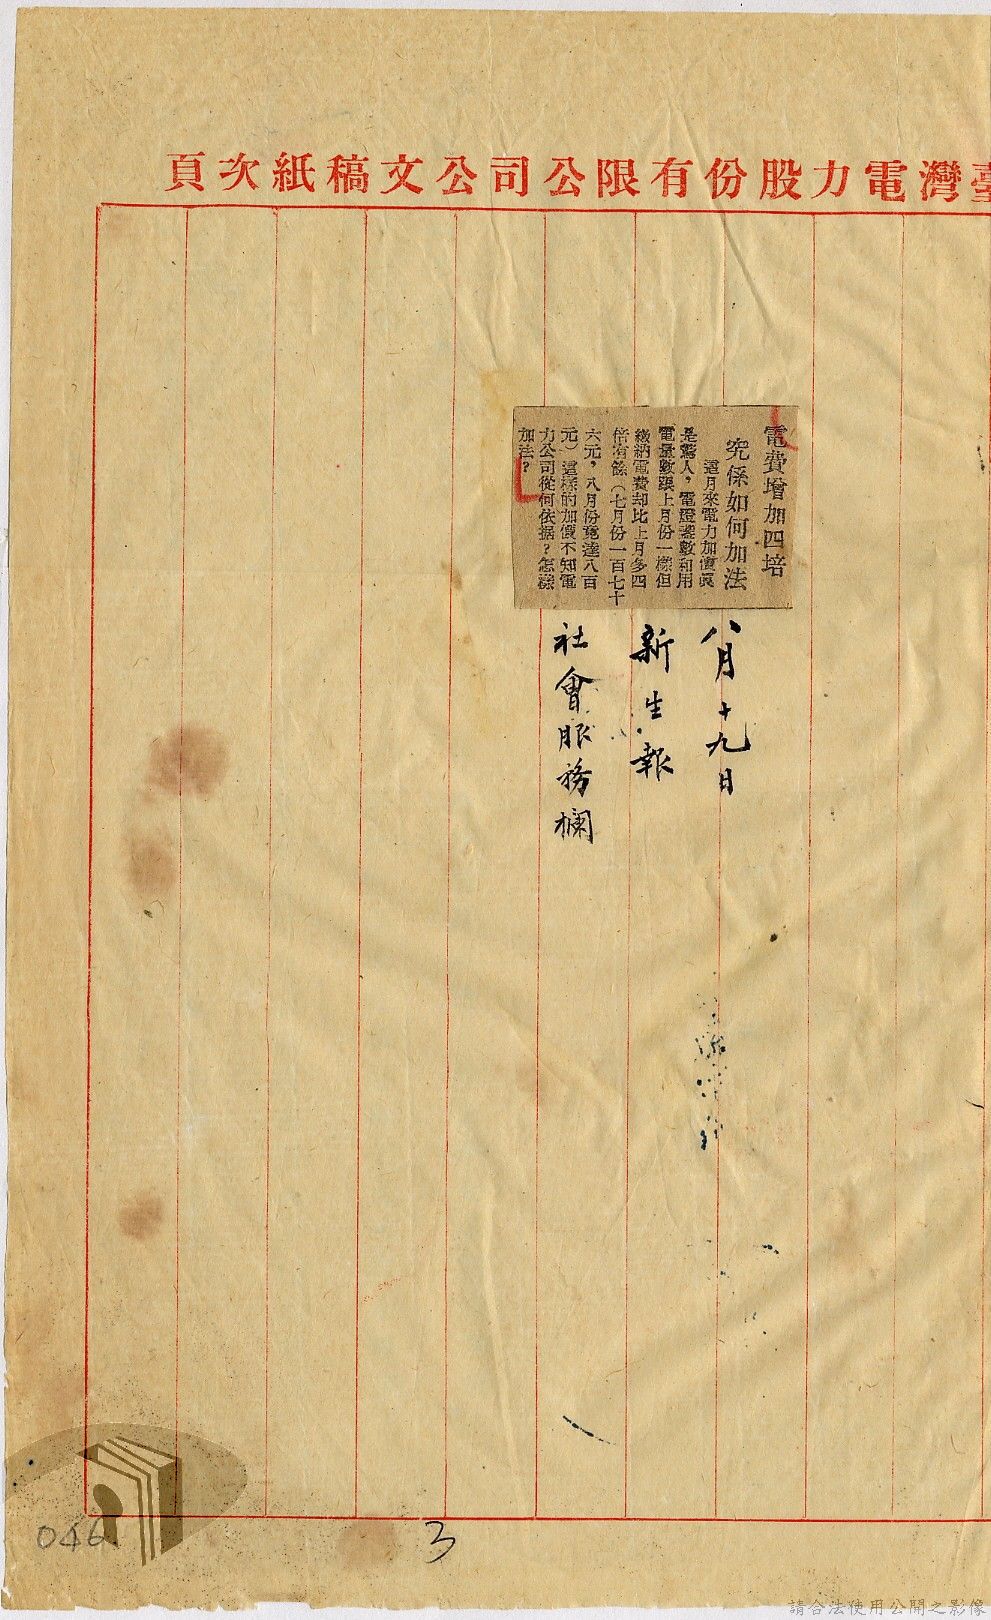 臺灣電力股份有限公司公文稿紙次頁
電費增加四培
究係如何加法
這月來電力加價眞
是驚人，電燈盞數和用
電量數跟上月份一樣但
繳納電費却比上月多四
倍有餘（七月份一百七十
六元，八月份竟達八百
元）這樣的加價不知電
力公司從何依据？怎樣
加法？
八月十九日
新生報
社會服務欄
046
3
請合法使用公開之影像